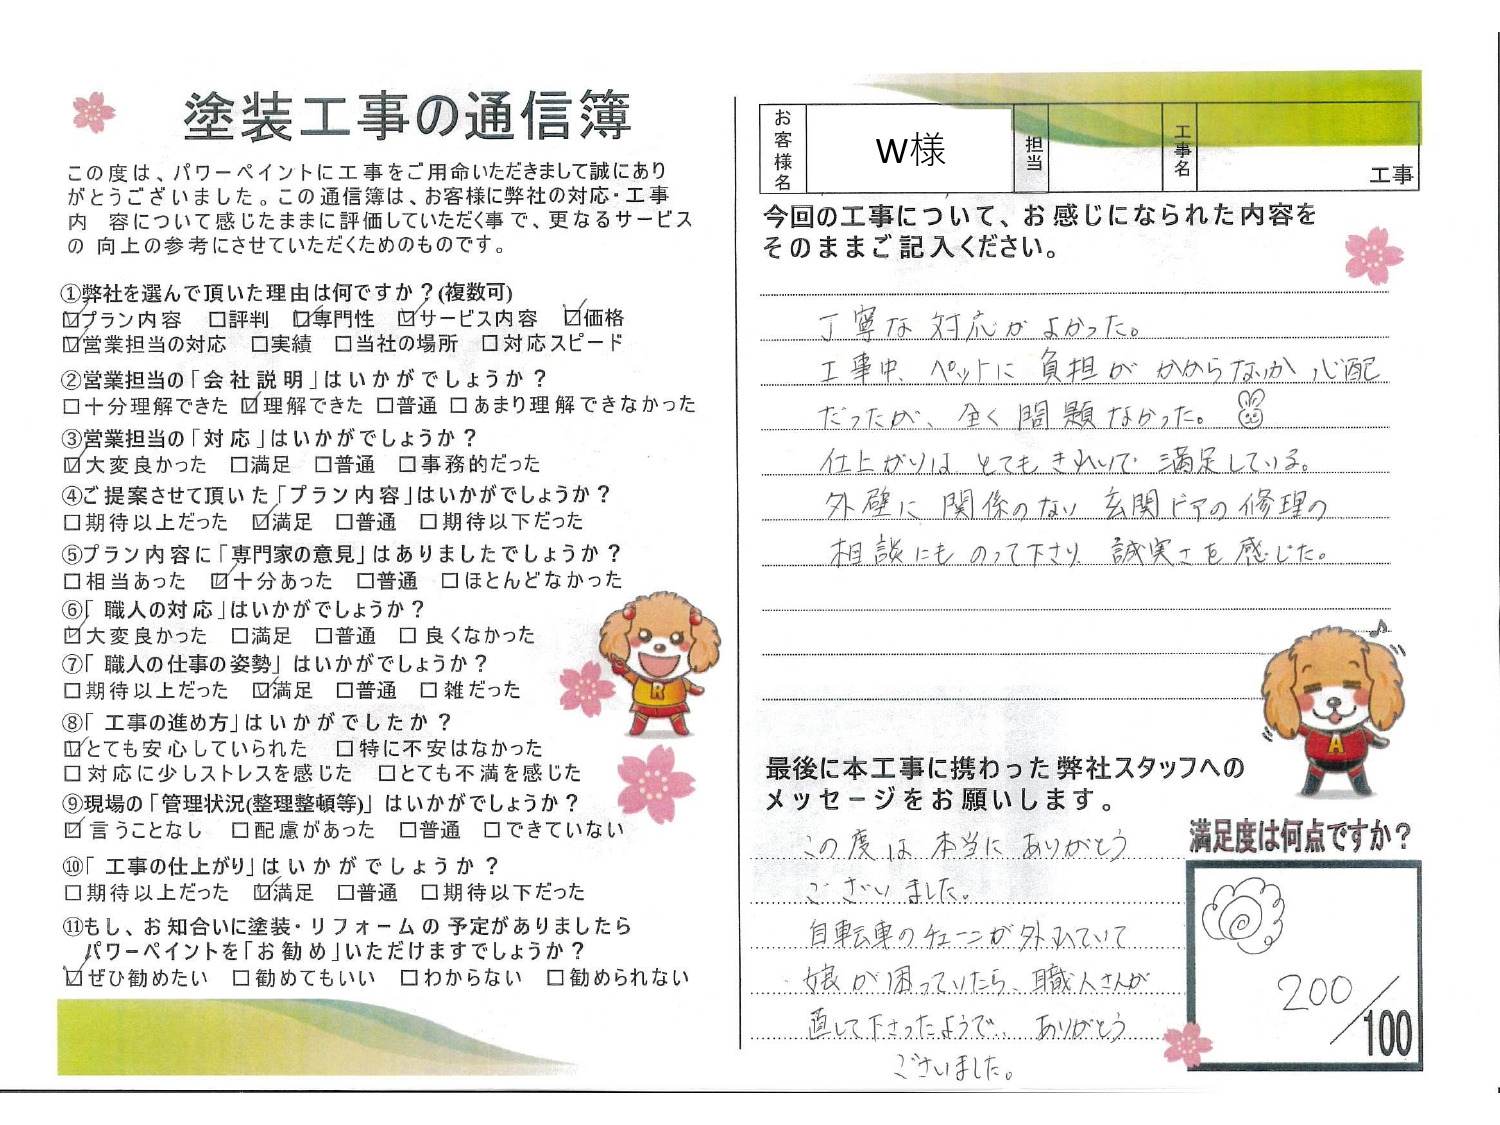 塗装工事の通信簿
この度は、パワーペイントに工事をご用命いただきまして誠にあり
がとうございました。この通信簿は、お客様に弊社の対応・工事
内 容について感じたままに評価していただく事で、更なるサービス
の 向上の参考にさせていただくためのものです。
①弊社を選んで頂いた理由は何ですか？(複数可)
☑プラン内容 ☐評判 ☑専門性 ☑サービス内容 ☑価格
☑営業担当の対応 ☐実績 ☐当社の場所 ☐対応スピード
②営業担当の「会社説明」はいかがでしょうか？
☐十分理解できた ☑理解できた ☐普通 ☐あまり理解できなかった
③営業担当の「対応」はいかがでしょうか？
☑大変良かった ☐満足 ☐普通 ☐事務的だった
④ご提案させて頂いた「プラン内容」はいかがでしょうか？
☐期待以上だった ☑満足 ☐普通 ☐期待以下だった
⑤プラン内容に「専門家の意見」はありましたでしょうか？
☐相当あった ☑十分あった ☐普通 ☐ほとんどなかった
⑥「職人の対応」はいかがでしょうか？
☑大変良かった ☐満足 ☐普通 ☐良くなかった
⑦「職人の仕事の姿勢」はいかがでしょうか？
☐期待以上だった ☑満足 ☐普通 ☐雑だった
⑧「工事の進め方」はいかがでしたか？
☑とても安心していられた ☐特に不安はなかった
☐対応に少しストレスを感じた ☐とても不満を感じた
⑨現場の「管理状況(整理整頓等)」はいかがでしょうか？
☑言うことなし ☐配慮があった ☐普通 ☐できていない
⑩「工事の仕上がり」はいかがでしょうか？
☐期待以上だった ☑満足 ☐普通 ☐期待以下だった
⑪もし、お知合いに塗装・リフォームの予定がありましたら
パワーペイントを「お勧め」いただけますでしょうか？
☑ぜひ勧めたい ☐勧めてもいい ☐わからない ☐勧められない
R
お客様名 W様 担当 工事名 工事
今回の工事について、お感じになられた内容を
そのままご記入ください。
丁寧な対応がよかった。
工事中、ペットに負担がかからないか心配
だったが、全く問題なかった。
仕上がりは、とてもきれいで満足している。
外壁に関係のない玄関ドアの修理の
相談にものって下さり、誠実さを感じた。
A
最後に本工事に携わった弊社スタッフへの
メッセージをお願いします。
この度は本当にありがとう
ございました。
自転車のチェーンが外れていて
娘が困っていたら、職人さんが
直して下さったようで、ありがとう
ございました。
満足度は何点ですか？
200/100